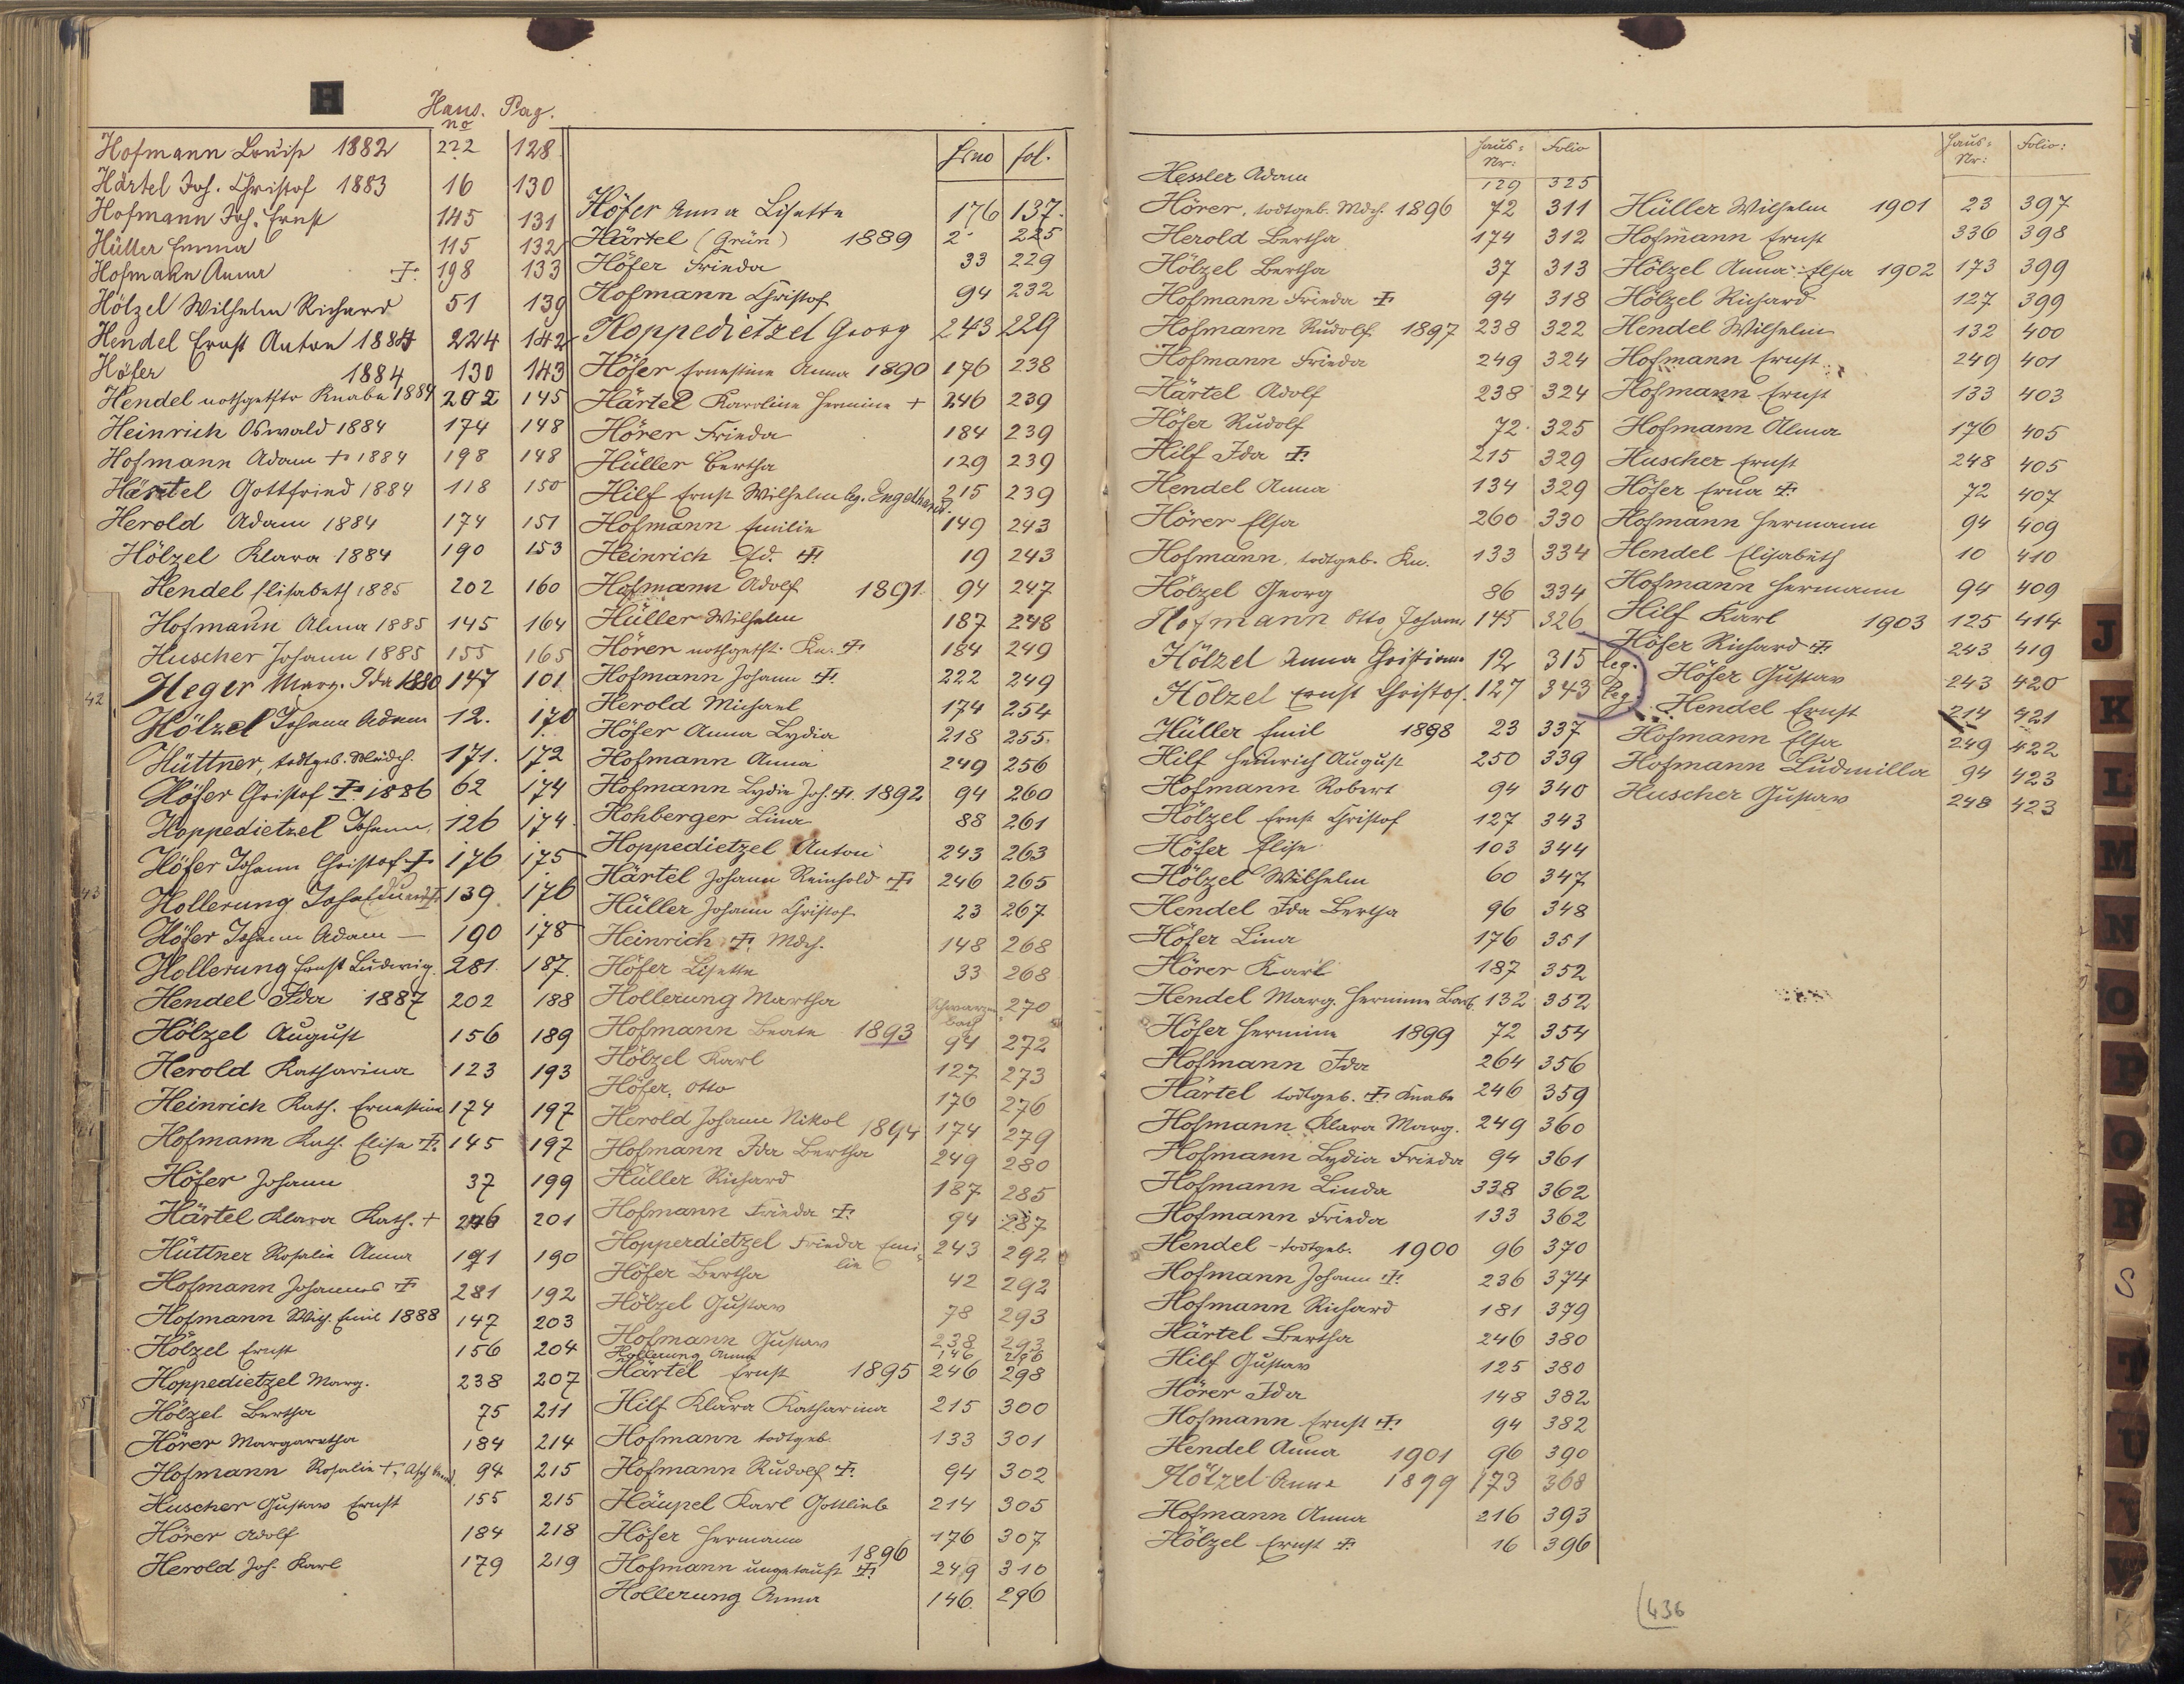 H
Haus. Pag.
no
Hofmann Louise 1882 222 128
Härtel Joh. Christof 1883 16 130
Hofmann Joh. Ernst 145 131
Hüller Emma 115 132
Hofmann Anna 198 133
Hölzel Wilhelm Richard 51 139
Hendel Ernst Anton 1884 224 142
Höfer 1884 130 143
Hendel nothgetfte Knabe 1884 202 145
Heinrich Oswald 1884 174 148
Hofmann Adam + 1884 198 148
Härtel Gottfried 1884 118 150
Herold Adam 1884 174 151
Hölzel Klara 1884 190 153
Hendel Elisabeth 1885 202 160
Hofmann Alma 1885 145 164
Huscher Johann 1885 155 165
Heger Marg. Ida 1880 147 101
Hölzel Johann Adam 12. 170
Hüttner, todtgeb. Mädch. 171. 172
Höfer Christof 1886 62 174
Hoppedietzel Johann 126 174
Höfer Johann Christof 176 175
Hollerung Joh. Eduard 139 176
Höfer Johann Adam — 190 178
Hollerung Ernst Ludwig 281. 187.
Hendel Ida 1887 202 188
Hölzel August 156 189
Herold Katharina 123 193
Heinrich Kath. Ernestine 174 197
Hofmann Kath. Elise 145 197
Höfer Johann 37 199
Härtel Klara Kath. + 246 201
Hüttner Rosalie Anna 171 190
Hofmann Johannes 281 192
Hofmann Mich. Emil 1888 147 203
Hölzel Ernst 156 204
Hoppedietzel Marg. 238 207
Hölzel Bertha 75 211
Hörer Margaretha 184 214
Hofmann Rosalie +, Asch 94 215
Huscher Gustav Ernst 155 215
Hörer Adolf 184 218
Herold Joh. Karl 179 219
Hsno fol.
Höfer Anna Lisette 176 137.
Härtel (Grün) 1889 2 225
Höfer Frieda 33 229
Hofmann Christof 94 232
Hoppedietzel Georg 243 229
Höfer Ernestine Anna 1890 176 238
Härtel Karoline Hermine + 246 239
Hörer Frieda 184 239
Hüller Bertha 129 239
Hilf Ernst Wilhelm leg. Engelhardt. 215 239
Hofmann Emilie 149 243
Heinrich Ed. 19 243
Hofmann Adolf 1891. 94 247
Hüller Wilhelm 187 248
Hörer nothgetft. Kn. 184 249
Hofmann Johann 222 249
Herold Michael 174 254
Höfer Anna Lydia 218 255.
Hofmann Anna 249 256
Hofmann Lydia Joh. 1892 94 260
Hohberger Lina 88 261
Hoppedietzel Anton 243 263
Härtel Johann Reinhold 246 265
Hüller Johann Christof 23 267
Heinrich Mdch. 148 268
Höfer Lisette 33 268
Hollerung Martha Schwarzenbach 270
Hofmann Beate 1893 94 272
Hölzel Karl 127 273
Höfer, Otto 176 276
Herold Johann Nikol 1894 174 279
Hofmann Ida Bertha 249 280
Hüller Richard 187 285
Hofmann Frieda 94 287
Hopperdietzel Frieda Emilie 243 292
Höfer Bertha 42 292
Hölzel Gustav 78 293
Hofmann Gustav 238 293
Hollerung Anna 146 296
Härtel Ernst 1895 246 298
Hilf Klara Katharina 215 300
Hofmann todtgeb. 133 301
Hofmann Rudolf 94 302
Häupel Karl Gottlieb 214 305
Höfer Hermann 176 307
Hofmann ungetauft 1896 249 310
Hollerung Anna 146. 296
Haus- Nr: Folio
Hessler Adam 129 325
Hörer, todtgeb. Mdch. 1896 72 311
Herold Bertha 174 312
Hölzel Bertha 37 313
Hofmann Frieda 94 318
Hofmann Rudolf 1897 238 322
Hofmann Frieda 249 324
Härtel Adolf 238 324
Höfer Rudolf 72 325
Hilf Ida 215 329
Hendel Anna 134 329
Hörer Elsa 260 330
Hofmann, todtgeb. Kn. 133 334
Hölzel Georg 86 334
Hofmann Otto Johann 145 326
Hölzel Anna Christiane 12 315 leg.
Hölzel Ernst Christof. 127 343 leg.
Hüller Emil 1898 23 337
Hilf Heinrich August 250 339
Hofmann Robert 94 340
Hölzel Ernst Christof 127 343
Höfer Elise 103 344
Hölzel Wilhelm 60 347
Hendel Ida Bertha 96 348
Höfer Lina 176 351
Hörer Karl 187 352
Hendel Marg. Hermine Barb. 132 352
Höfer Hermine 1899 72 354
Hofmann Ida 264 356
Härtel todtgeb. Knabe 246 359
Hofmann Klara Marg. 249 360
Hofmann Lydia Frieda 94 361
Hofmann Linda 338 362
Hofmann Frieda 133 362
Hendel - todtgeb. 1900 96 370
Hofmann Johann 236 374
Hofmann Richard 181 379
Härtel Bertha 246 380
Hilf Gustav 125 380
Hörer Ida 148 382
Hofmann Ernst 94 382
Hendel Anna 1901 96 390
Hölzel Anna 1899 173 368
Hofmann Anna 216 393
Hölzel Ernst 16 396
Haus- Nr: Folio:
Hüller Wilhelm 1901 23 397
Hofmann Ernst 336 398
Hölzel Anna Elsa 1902 173 399
Hölzel Richard 127 399
Hendel Wilhelm 132 400
Hofmann Ernst 249 401
Hofmann Ernst 133 403
Hofmann Alma 176 405
Huscher Ernst 248 405
Höfer Erna 72 407
Hofmann Hermann 94 409
Hendel Elisabeth 10 410
Hofmann Hermann 94 409
Hilf Karl 1903 125 414
Höfer Richard 243 419
Höfer Gustav 243 420
Hendel Ernst 214 421
Hofmann Elsa 249 422
Hofmann Ludmilla 94 423
Huscher Gustav 248 423
436
J
K
L
M
N
O
P
Q
R
S
T
U
V
W